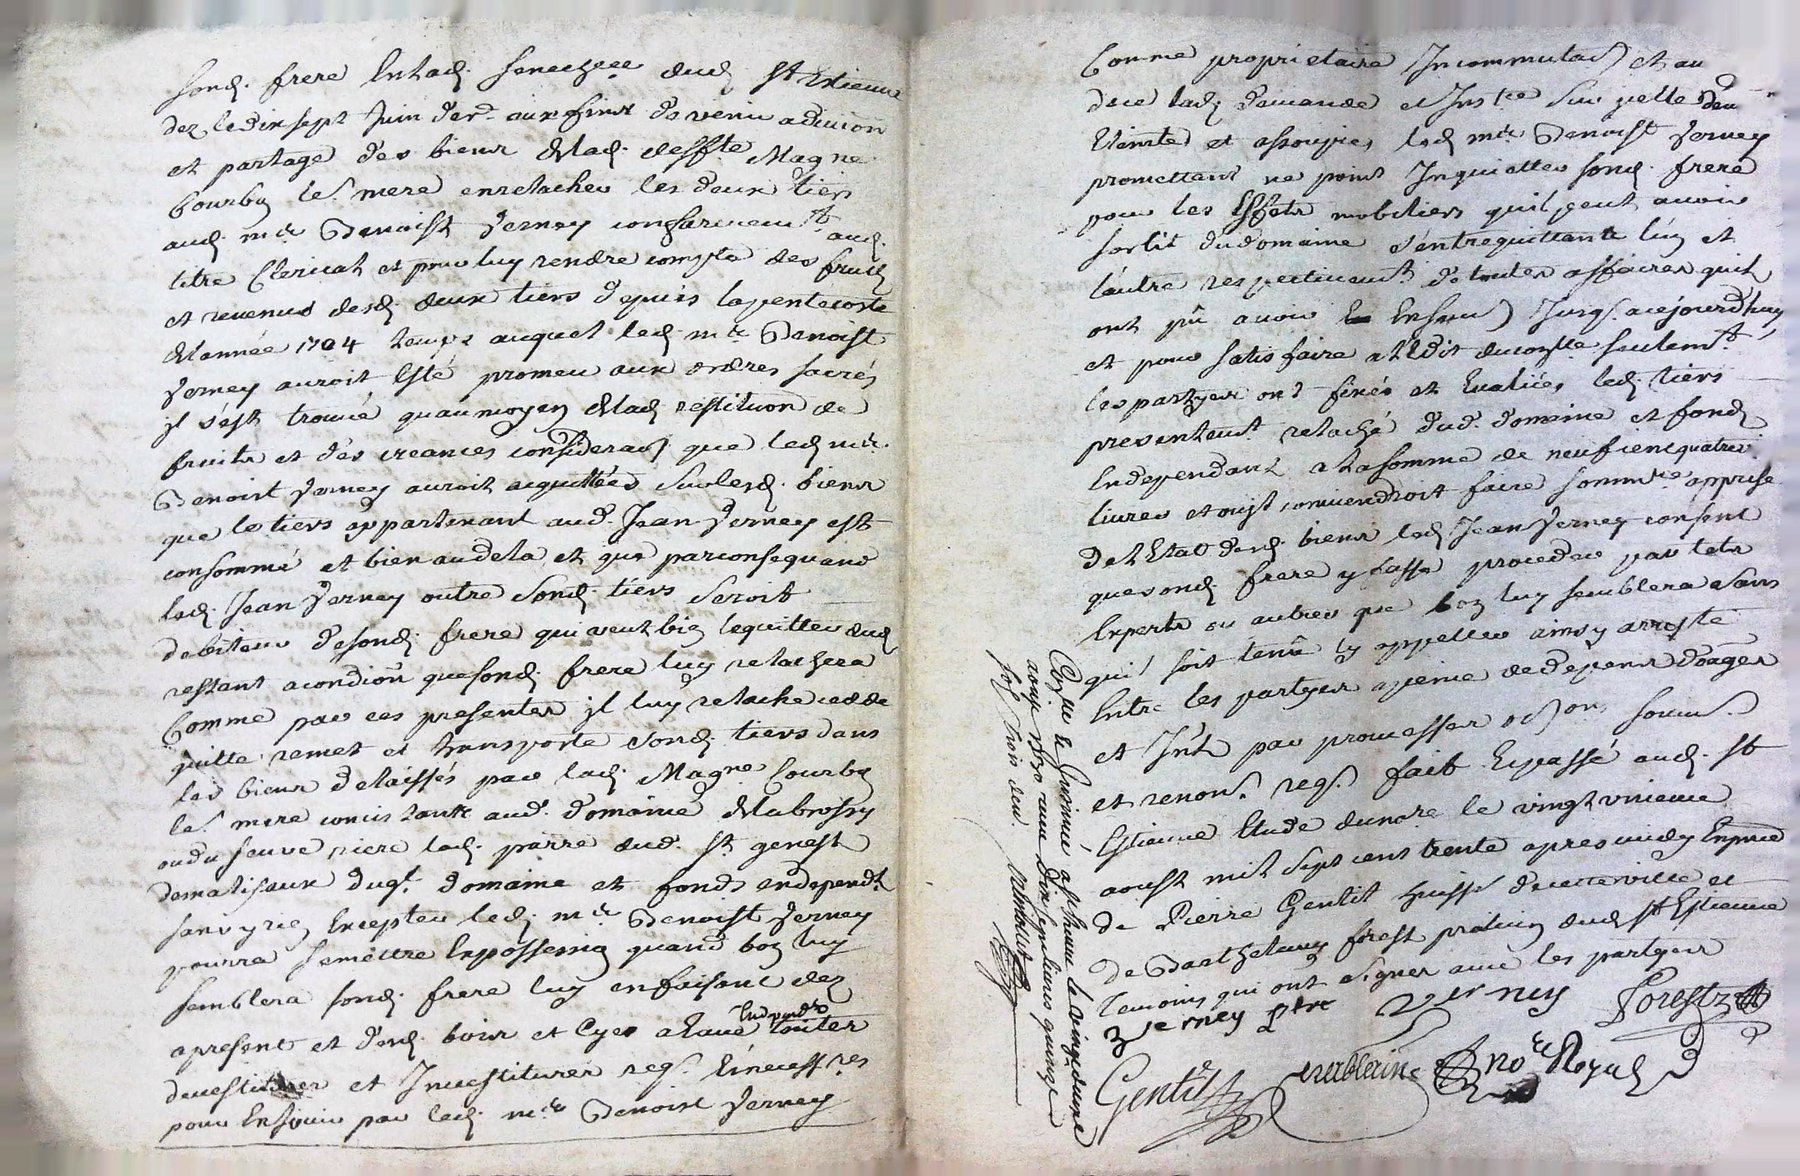 sond. frere en lad. senechée dud. St Estienne
dez le dix sept juin der. aux fins de venir a division
et partage des biens de lad. deffte Magne
Courbon les. mere en relacher les deux tiers
aud. mre Benoist Verney conformemt aud.
titre Clerical et pour luy rendre compte des fruits
et revenus desd. deux tiers depuis la pentecoste
de l'année 1704 temps auquel led. mre Benoist
Verney auroit esté promeu aux ordres sacrés
il s'est trouvé qu'au moyen de lad. restituon de
fruits et des creances considerab que led. mre
Benoist Verney auroit acquittées sur lesd. biens
que le tiers appartenant aud. Jean Verney est
consommé et bien au dela et que par consequand
led. Jean Verney outre sond. tiers seroit
debiteur de sond. frere qui veut bien le quitter dud.
restant a condiõn que sond. frere luy relachera
Comme par ces presentes il luy relache cedde
quitte remet et transporte sond. tiers dans
les biens delaissés par lad. Magne Courbon
les. mere consistants aud. domaine de la brossy
ou du feuve riere lad. parre dud. St genest
demalifaux dugl. domaine et fonds endependt
sans y rien excepter led. mre Benoist Verney
pourra se mettre en possession quand bon luy
semblera sond. frere luy en faisant dez
a present et desd. bois et Cyes a l'avenir toutes
endpendts
devestitures et Investitures reqs. & necessres
pour en jouir par led. mre Benoist Verney
Comme proprietaire Incommutab et au
dece lad. demande et Instce sur icelle deu
eteinte et assoupies led. mre Benoist Verney
promettant ne point Inquietter sond. frere
pour les Effets mobiliers qu'il peut avoir
sorti du domaine s'entrequittants l'un et
l'autre respectivemt de toutes affaires qu'ils
ont pû avoir Ensem Jusq. aujourd'huy
et pour satisfaire a l'Edit du contle seulemt
les partyes ont fixés et Evalués led. tiers
presentemt relaché dud. domaine et fonds
endependant a la somme de neuf cent quatre
livres et ou il conviendroit faire sommre apprise
de l'Etat desd. biens led. Jean Verney consent
que sond. frere y fasse proceder par tels
Experts ou autres que bon luy semblera sans
qu'il soit tenu l'y appeller ainsy arresté
Entre les partyes a peine de depens domages
et Intts par promesser obon soum.
et renon. reqs. fait & passé aud. St
Estienne Etude du nore le vingt unieme
aoust mil sept cent trente apres midy En pnce
de Pierre Gentil huissr de cette ville et
de Barthelemy forest praticien dud. St Estienne
temoins qui ont signer avec les partyes
Verney ptre Verney Forest
Gentil no.re Royal
Conlle & Insinué a St Etienne le vingt deux
aoust 1730 reçu dix sept livres quinze
sols trois den.